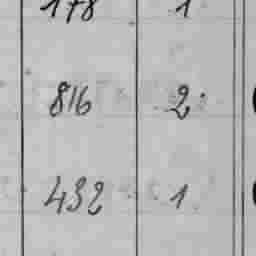 178 1
816 2
432 1